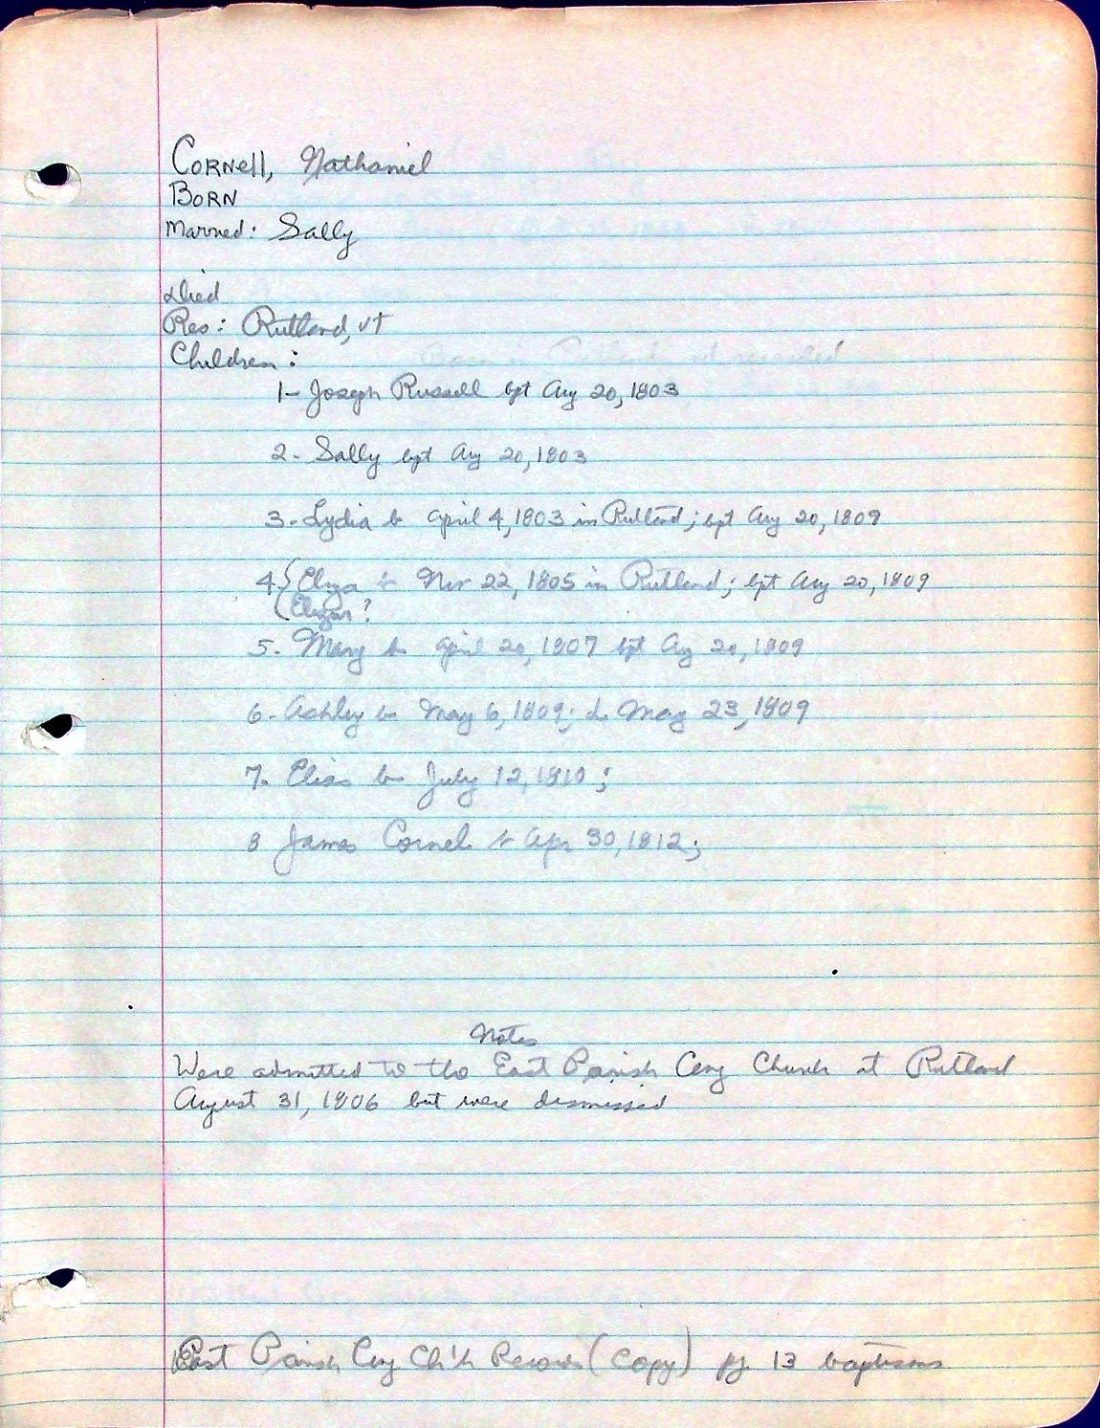 CORNell, Nathaniel
BORN
Married: Sally
Died
Res: Rutland, VT
Children:
1- Joseph Russell bpt Aug 20, 1803
2- Sally bpt Aug 20, 1803
3- Lydia b April 4, 1803 in Rutland; bpt Aug 20, 1809
4 {Eliza b Nov 22, 1805 in Rutland; bpt Aug 20, 1809
5- Mary b April 20, 1807 bpt Aug 20, 1809
6- Ashley b May 6, 1809; d. May 23, 1809
7- Elias b July 12, 1810;
8 James Cornel b Apr 30, 1812;
Notes
Were admitted to the East Parish Cong Church at Rutland
August 31, 1806 but were dismissed
East Parish Cong Ch'h Records (copy) pg 13 baptisms